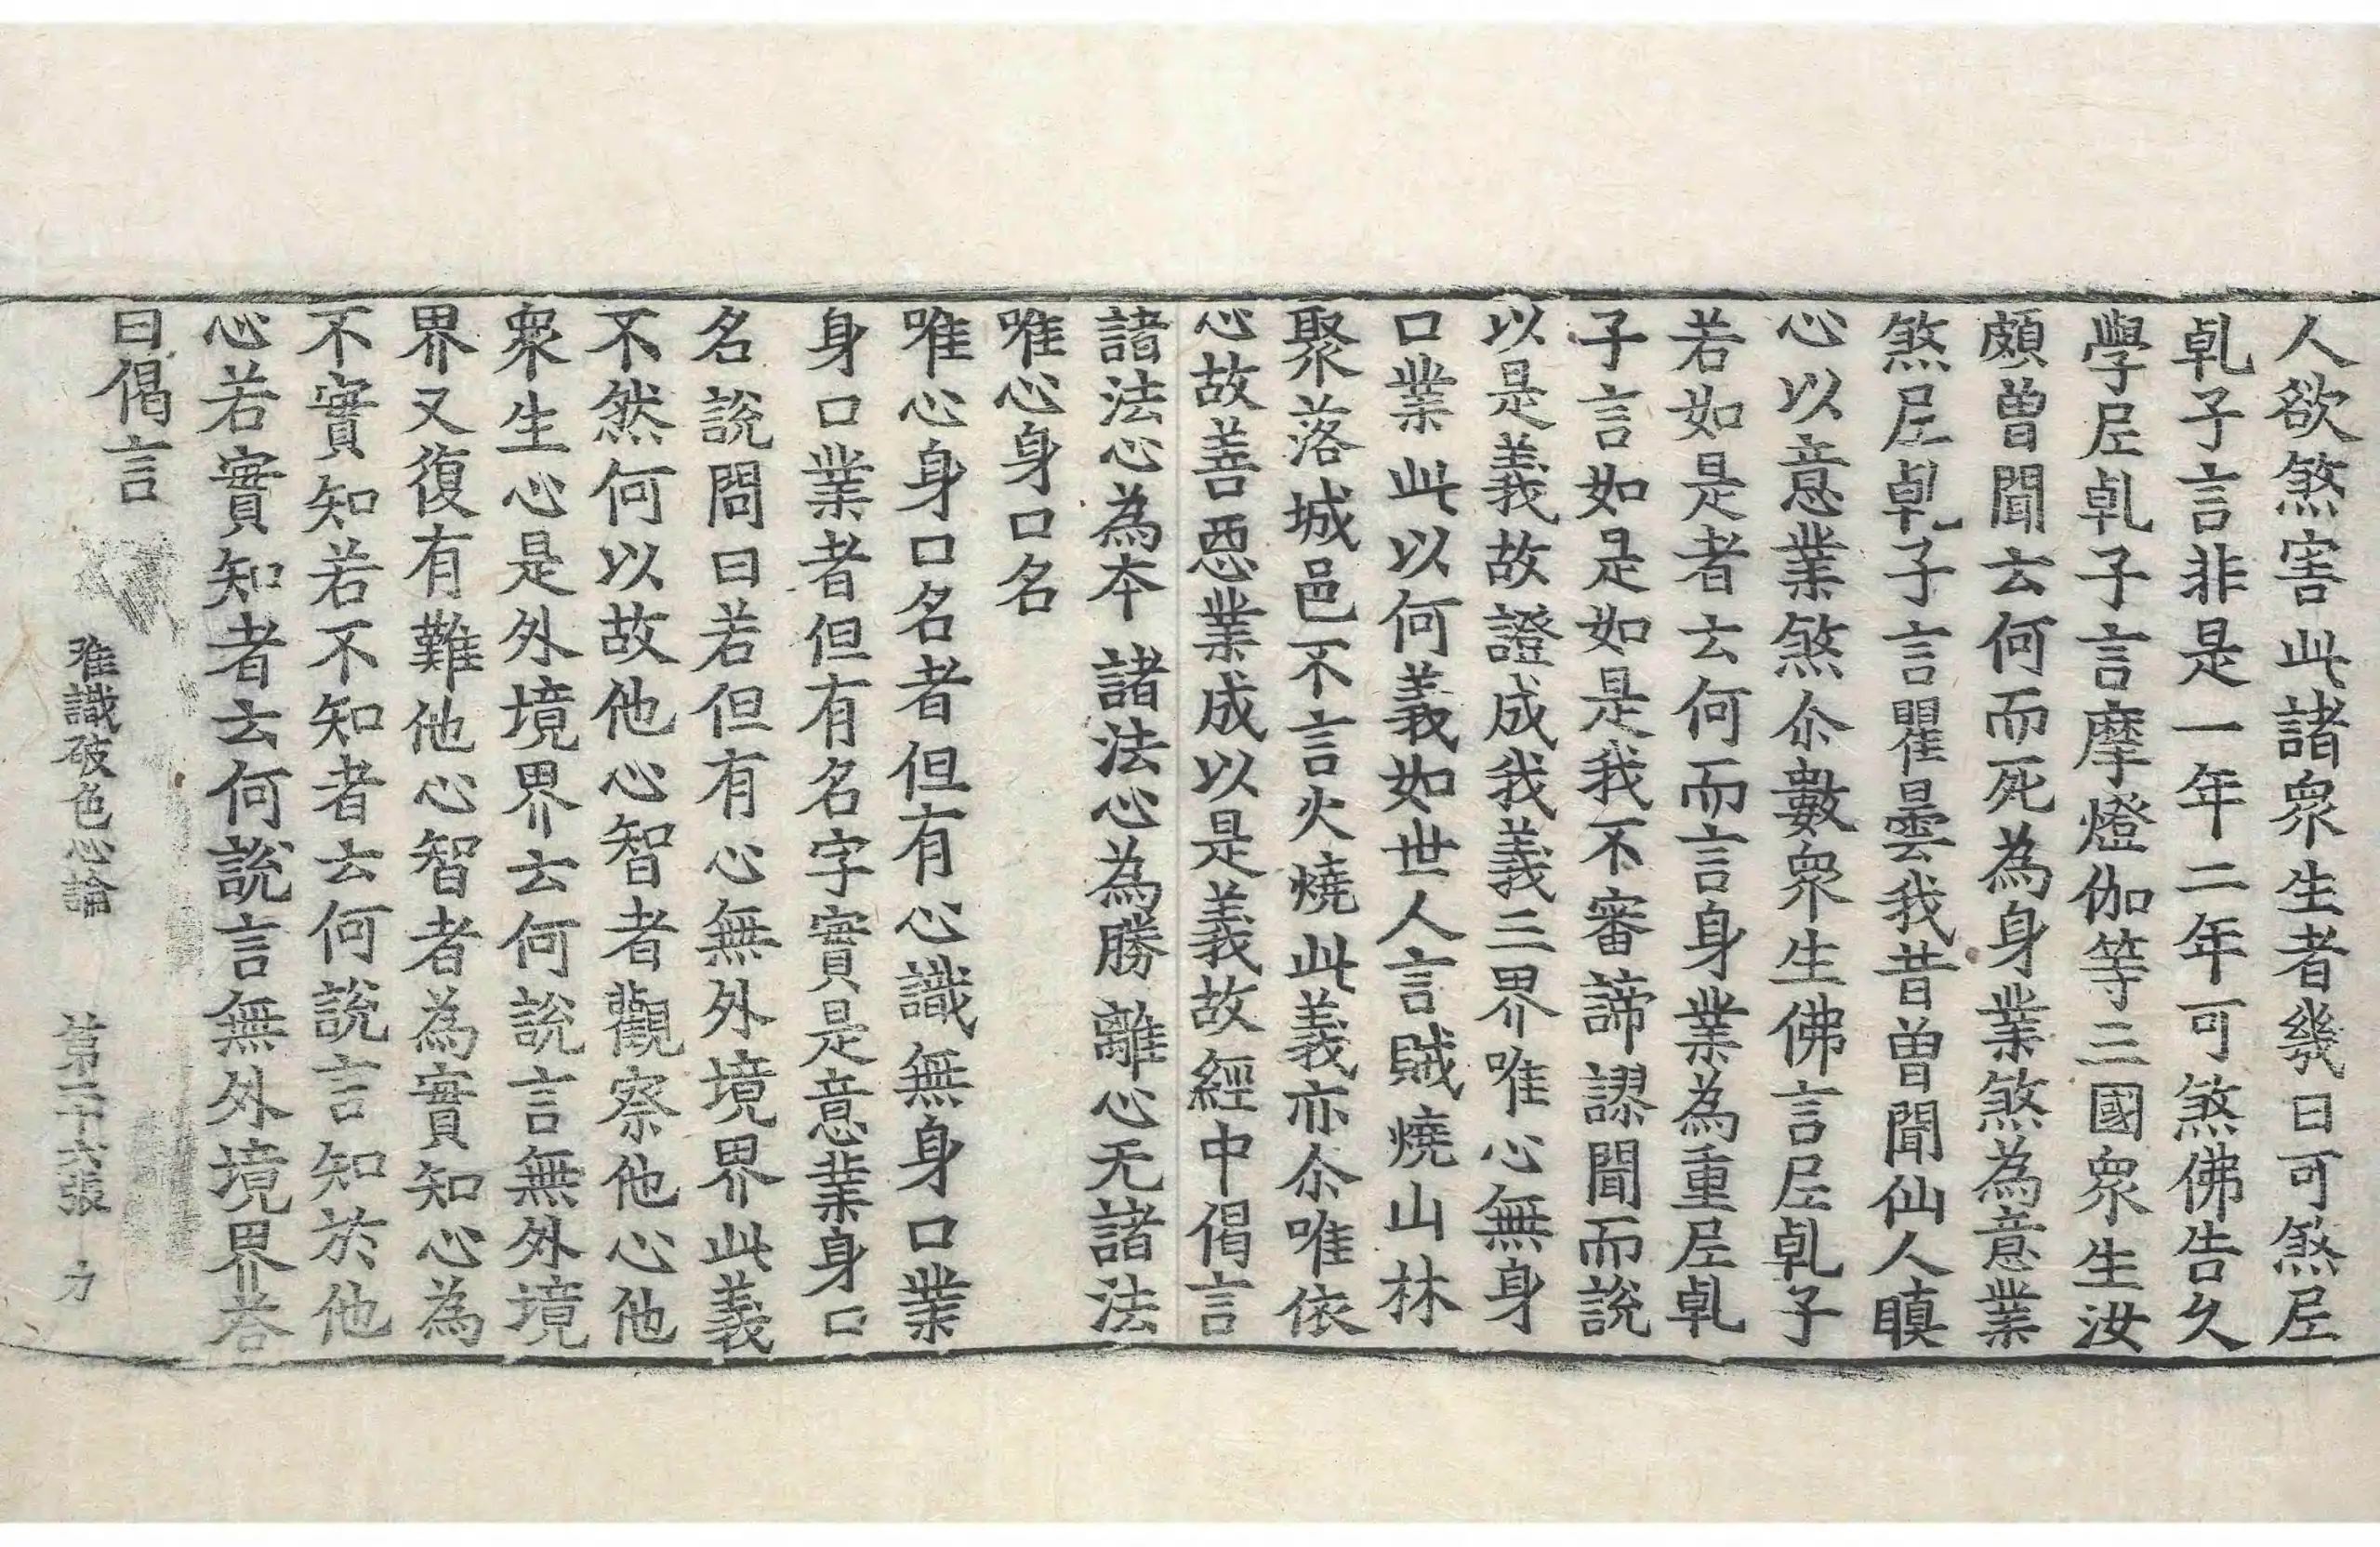 人欲煞害此諸衆生者幾日可煞𡰱
乹子言非是一年二年可煞佛告久
學𡰱乹子言摩燈伽等三國衆生汝
頗曽聞云何而死為身業煞為意業
煞𡰱乹子言瞿曇我昔曽聞仙人瞋
心以意業煞尒數衆生佛言𡰱乹子
若如是者云何而言身業為重𡰱乹
子言如是如是我不審諦謬聞而說
以是義故證成我義三界唯心無身
口業此以何義如世人言賊燒山林
聚落城邑不言火燒此義亦尒唯依
心故善惡業成以是義故經中偈言
諸法心為本 諸法心為勝 離心无諸法
唯心身口名
唯心身口名者但有心識無身口業
身口業者但有名字實是意業身口
名說問曰若但有心無外境界此義
不然何以故他心智者觀察他心他
衆生心是外境界云何說言無外境
界又復有難他心智者為實知心為
不實知若不知者云何說言知於他
心若實知者云何說言無外境界荅
曰偈言
唯識破色心論 第二十弍張 力